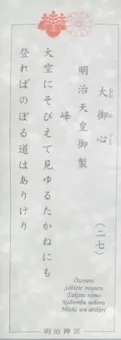 大御心
おおみごころ
明治天皇御製
(二七)
峰
大空にそびえて見ゆるたかねにも
登ればのぼる道はありけり
Ōzorani
Sobiete miyuru
Takane nimo
Noboreba noboru
Michi wa arikeri
明治神宮